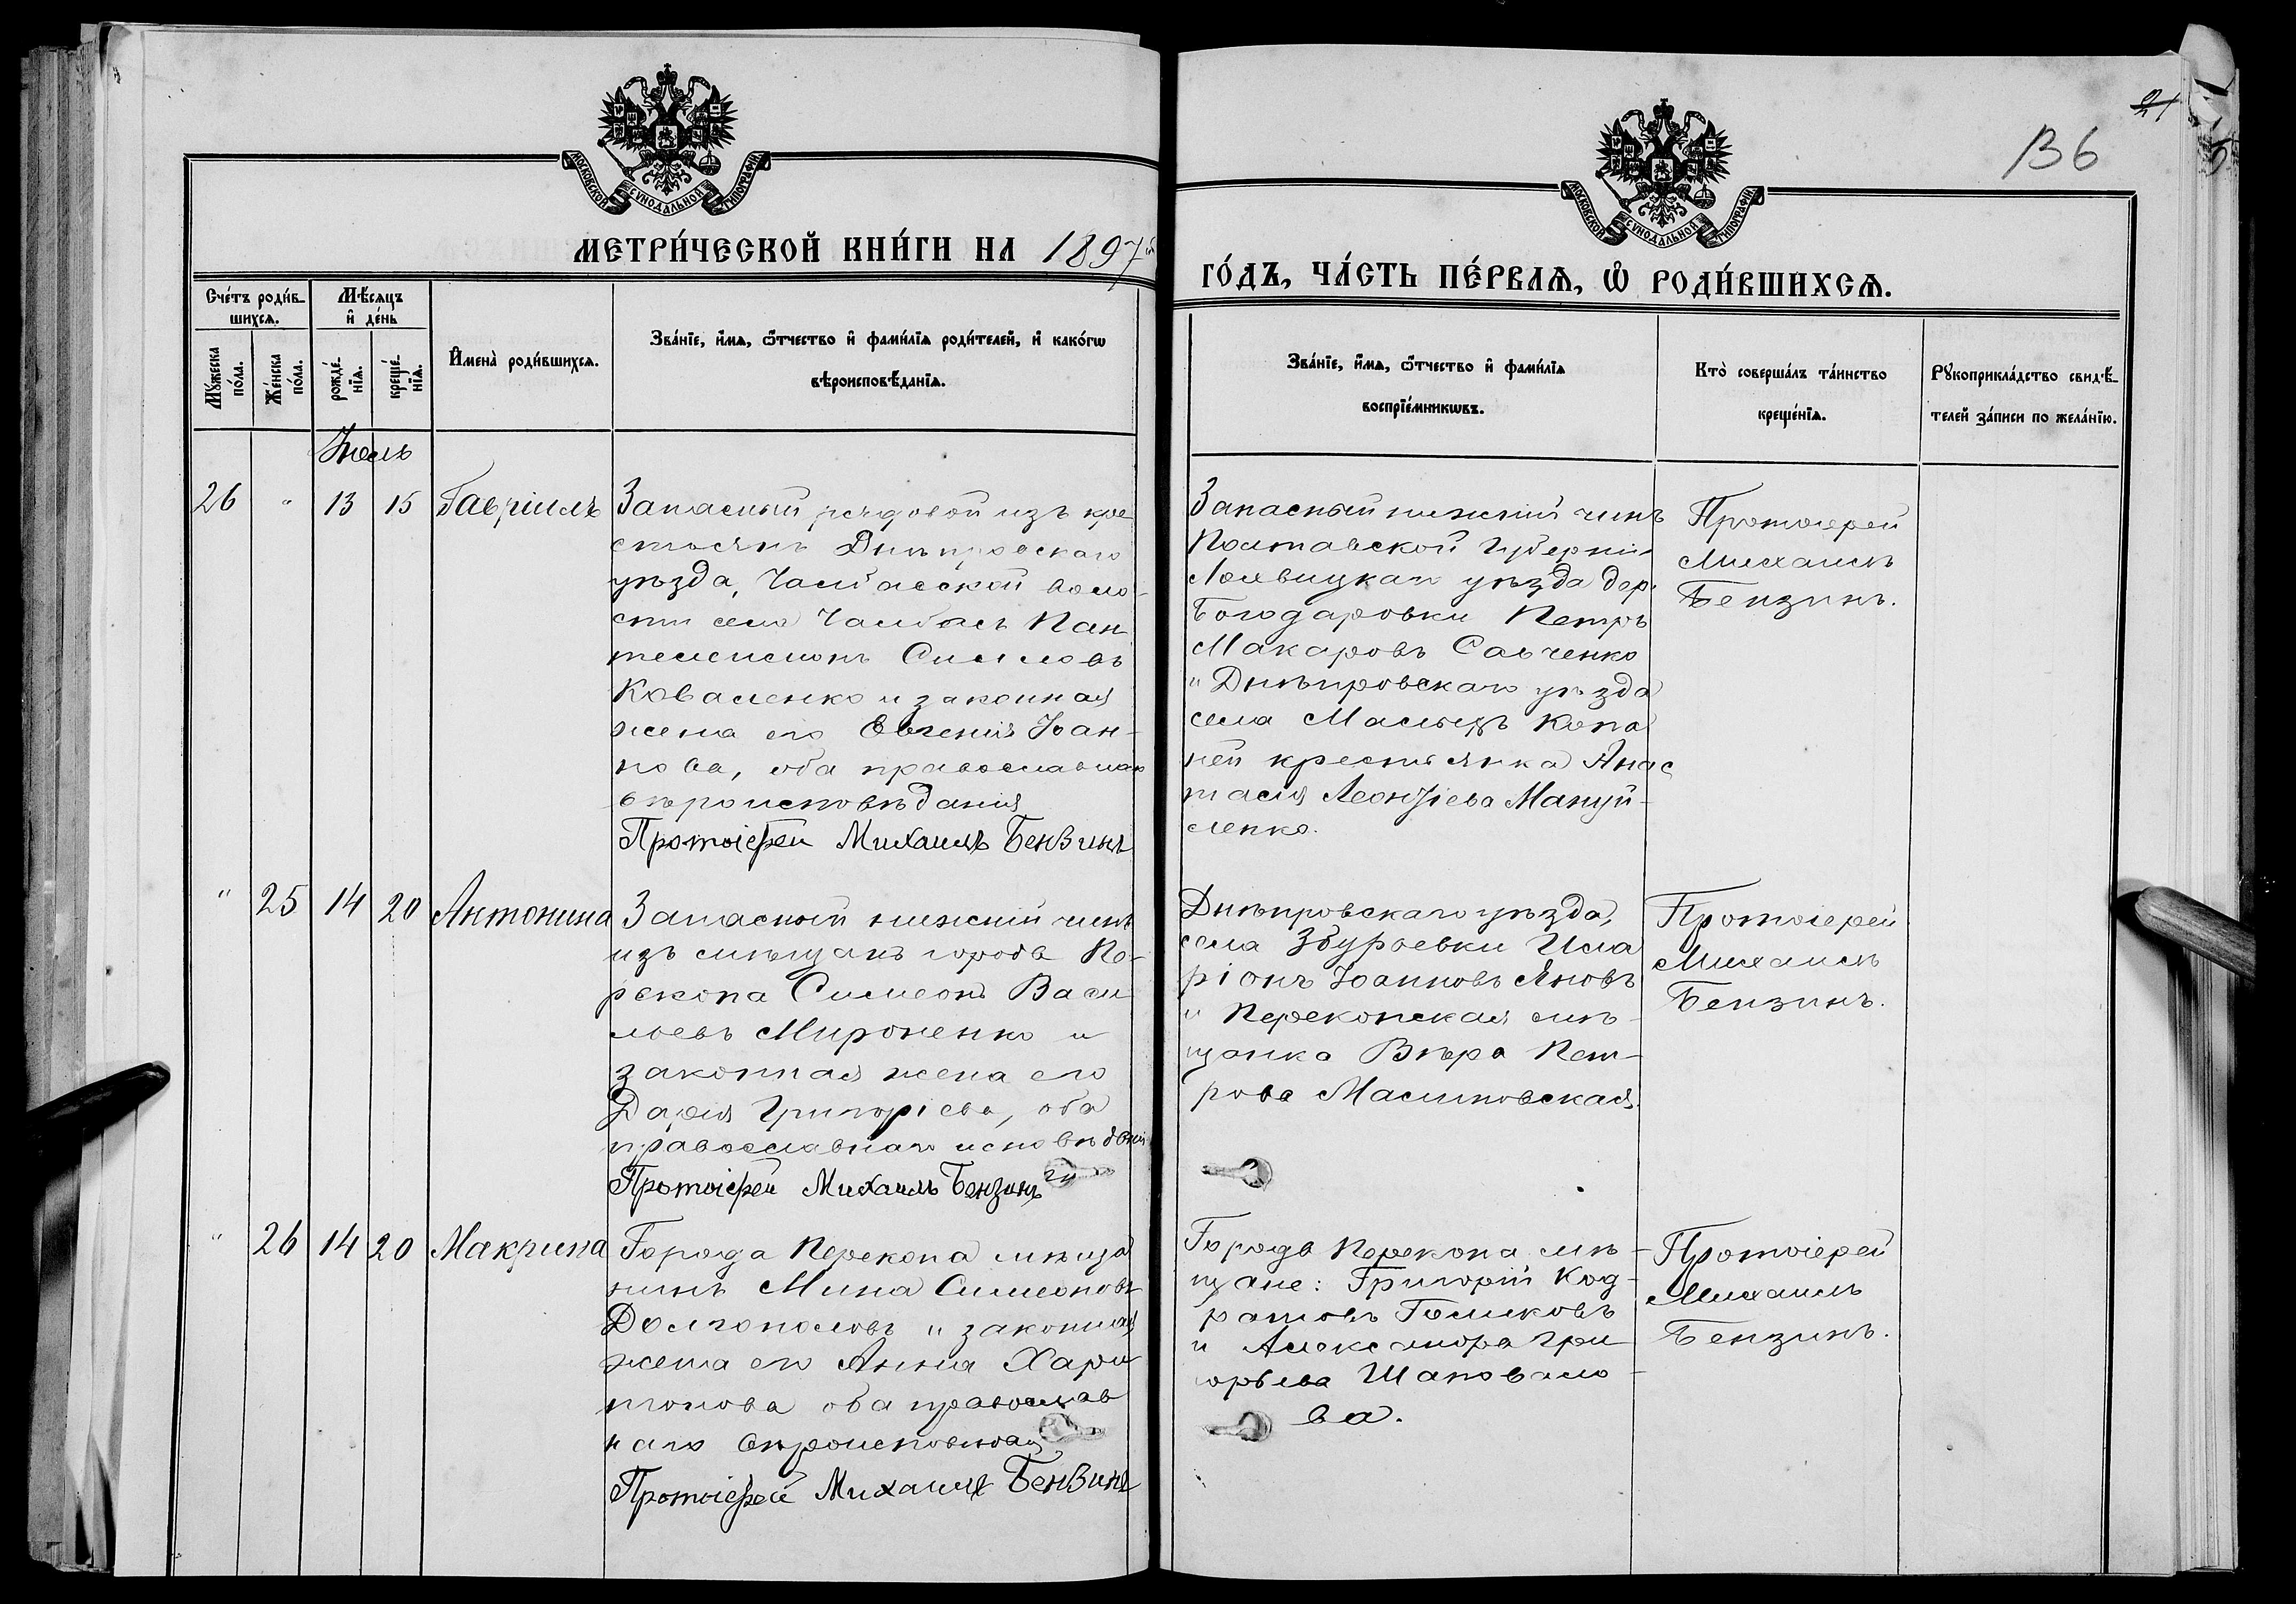 21
136
МОСКОВСКОЙ СУНОДАЛЬНОЙ ТИПОГРАФІИ
МОСКОВСКОЙ СУНОДАЛЬНОЙ ТИПОГРАФІИ
МЕТРИ́ЧЕСКОЙ КНИ́ГИ НА 1897й
ГО́ДЪ, ЧА́СТЬ ПЕ́РВАѦ, Ѡ҆ РОДИ́ВШИХСѦ.
Сче́тъ роди́в-
шихсѧ.
Мꙋ́жеска по́ла.
Же́нска по́ла.
Мѣ́сѧцъ
и҆ де́нь
рожде́нїѧ.
креще́нїѧ.
И҆мена̀ роди́вшихсѧ.
Зва́нїе, и҆́мѧ, ѻ҆́тчество и҆ фами́лїѧ роди́телей, и҆ како́гѡ
вѣроисповѣ́данїѧ.
Зва́нїе, и҆́мѧ, ѻ҆́тчество и҆ фами́лїѧ
воспрїе́мникѡвъ.
Кто̀ соверша́лъ та́инство
креще́нїѧ.
Рꙋкоприкла́дство свидѣ́-
телей за́писи по жела́нїю.
Іюль
26 " 13 15 Гавріилъ
Запасный рядовой изъ кре
стьянъ Днѣпровскаго
уѣзда, Чалбасской воло-
сти села Чалбасъ Пан
телеимонъ Симеовъ
Коваленко и законная
жена его Евгенія Іоан-
нова, оба православнаго
вѣроисповѣданія
Протоіерей Михаилъ Бензинъ
Запасный нижній чинъ
Полтавской губерніи
Лохвицкаго уѣзда дер.
Богодаровки Петръ
Макаровъ Савченко
и Днѣпровскаго уѣзда
села Малыхъ Копа
ней крестьянка Анас
тасія Леонтіева Мануй-
ленко.
Протоіерей
Михаилъ
Бензинъ.
" 25 14 20 Антонина
Запасный нижній чинъ
изъ мѣщанъ города Пе-
рекопа Симеонъ Васи
льевъ Мироненко и
законная жена его
Дарія Григоріева, оба
православнаго исповѣданія
Протоіерей Михаилъ Бензинъ
Днѣпровскаго уѣзда,
села Збурьевки Ила
ріонъ Іоанновъ Яновъ
и Перекопская мѣ-
щанка Вѣра Пет-
рова Малиновская.
Протоіерей
Михаилъ
Бензинъ.
" 26 14 20 Макрина
Города Перекопа мѣща
нинъ Мина Симеоновъ
Долгополовъ и законная
жена его Анна Хари
тонова оба православ
наго вѣроисповѣдан
Протоіерей Михаилъ Бензинъ
Города Перекопа мѣ-
щане: Григорій Код-
ратовъ Голиковъ
и Александра Гри
горьева Шаповало-
ва.
Протоіерей
Михаилъ
Бензинъ.